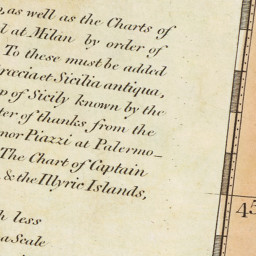 as well as the Charts of
at Milan by order of
To these must be added
Græcia et Sicilia antiqua,
of Sicily known by the
of thanks from the
Piazzi at Palermo_
The Chart of Captain
& the Illyric Islands,
less
a Scale